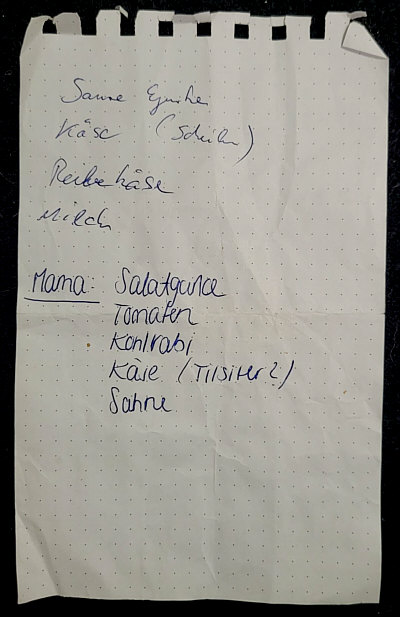 Saure Gurken
Käse (Scheiben)
Reibekäse
Milch
Mama: Salatgurke
Tomaten
Kohlrabi
Käse (Tilsiter?)
Sahne